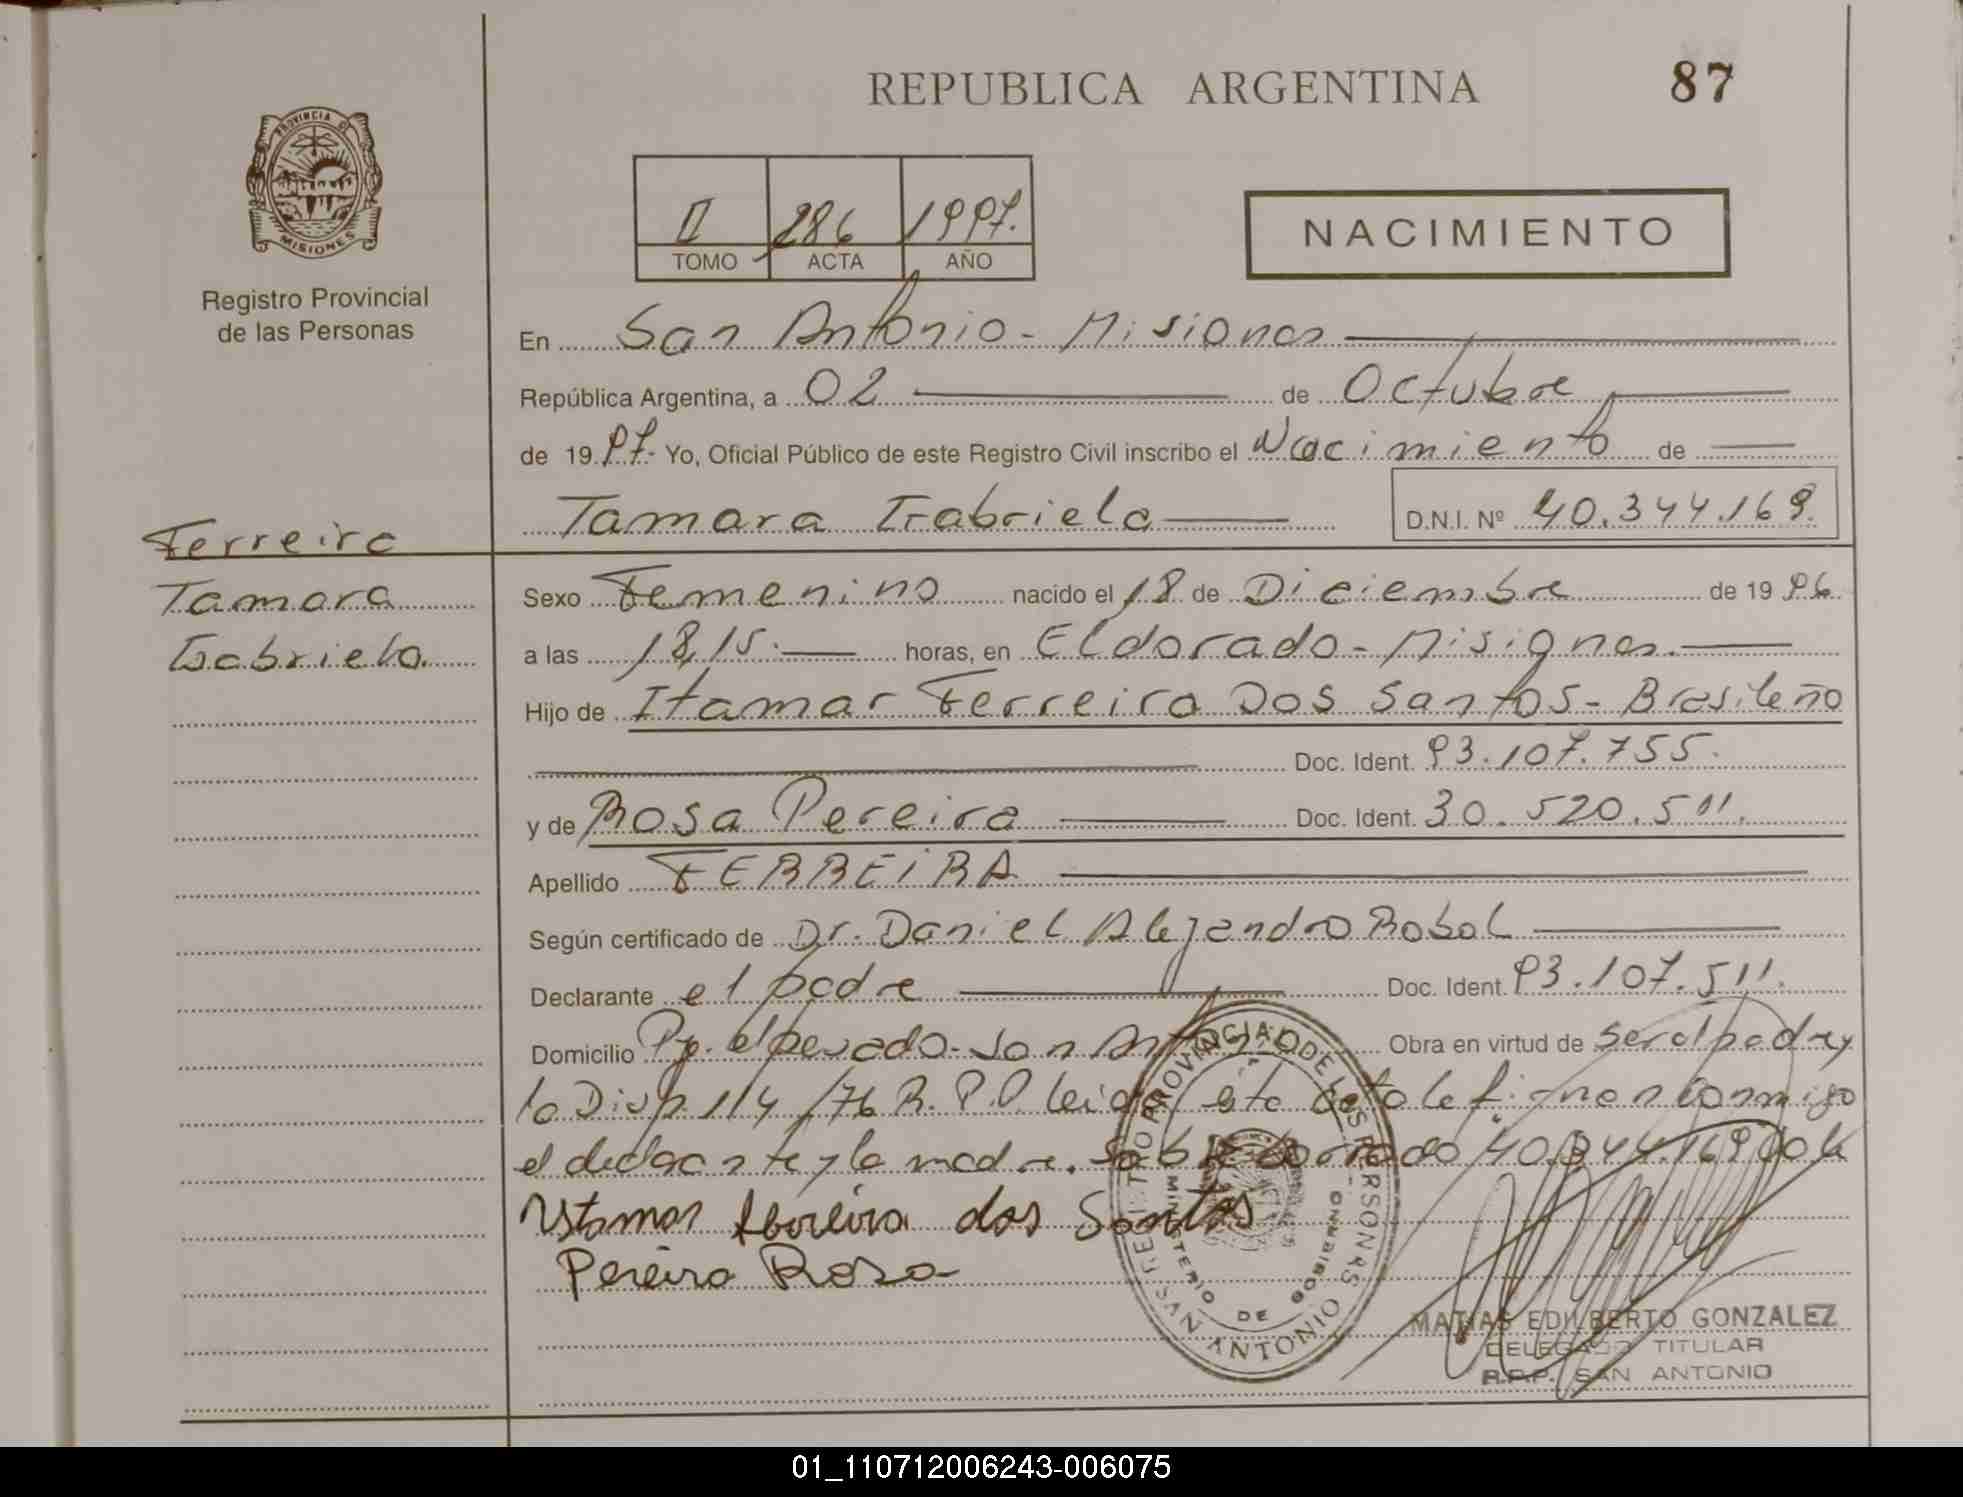 REPUBLICA ARGENTINA
87
PROVINCIA DE
MISIONES
Registro Provincial
de las Personas
II 286 1997.
TOMO ACTA AÑO
NACIMIENTO
En San Antonio - Misiones
República Argentina, a 02 de Octubre
de 1997. Yo, Oficial Público de este Registro Civil inscribo el Nacimiento de
Tamara Gabriela
D.N.I. Nº 40.344.169.
Ferreira
Tamara
Gabriela.
Sexo Femenino nacido el 18 de Diciembre de 1996.
a las 18,15. horas, en Eldorado - Misiones.
Hijo de Itamar Ferreira Dos Santos - Brasileño
Doc. Ident. 93.107.755.
y de Rosa Pereira Doc. Ident. 30.520.511.
Apellido FERREIRA
Según certificado de Dr. Daniel Alejandro Robol
Declarante el padre Doc. Ident. 93.107.511.
Domicilio Pje. el pesado - San Ant Obra en virtud de ser el padre y
la Disp. 114/76 R.P.P. leida esta acta le firman conmigo
el declarante y la madre. Sobre borrado 40.344.169 Vale
Ystamar ferreira dos Santos
Pereira Rosa
REGISTRO PROVINCIAL DE LAS PERSONAS
MINISTERIO DE GOBIERNO
SAN ANTONIO
MATIAS EDILBERTO GONZALEZ
DELEGADO TITULAR
R.P.P. SAN ANTONIO
01_110712006243-006075